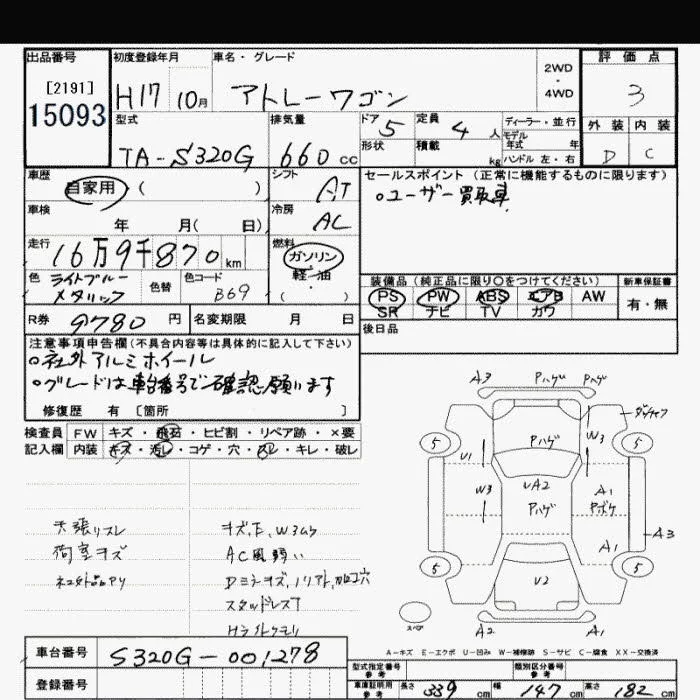 出品番号 初度登録年月 車名・グレード 評価点
[2191] 2WD
15093 H17 10月 アトレーワゴン ・ 3
4WD
型式 排気量 ドア 5 定員 4人 ディーラー・並行 外装 内装
TA-S320G 660cc 形状 積載 kg モデル年式 年 D C
ハンドル 左・右
車歴 シフト セールスポイント (正常に機能するものに限ります)
自家用 ( ) AT 。ユーザー買取車
車検 年 月( 日) 冷房 AC
走行 16万9千870km 燃料 ガソリン
軽・油
( ・ )
色 ライトブルーメタリック 色替 色コード B69
装備品 (純正品に限り○をつけてください) 新車保証書
PS PW ABS エアB AW 有・無
SR ナビ TV カワ
R券 9780円 名変期限 月 日 後日品
注意事項申告欄(不具合内容等は具体的に記入して下さい)
。社外アルミホイール
。グレードは車台番号で確認願います
修復歴 有 [箇所 ]
検査員 FW キズ・飛石・ヒビ割・リペア跡・×要
記入欄 内装 キズ・汚レ・コゲ・穴・スレ・キレ・破レ
天張リスレ キズ,E,W3ムラ
荷室キズ AC風弱い
スタッドレスT
Hライトクモリ
A3 Pハゲ Pハゲ
5 U1 Pハゲ W3 5
W3 UA2 A1
Pハゲ Pボケ
A3
A1
5 U2 5
スペア A2 A1
A-キズ E-エクボ U-凹み W-補修跡 S-サビ C-腐食 XX-交換済
車台番号 S320G-001278
登録番号
型式指定番号 参考 類別区分番号 参考
車庫証明用 参考 長さ 339cm 幅 147cm 高さ 182cm